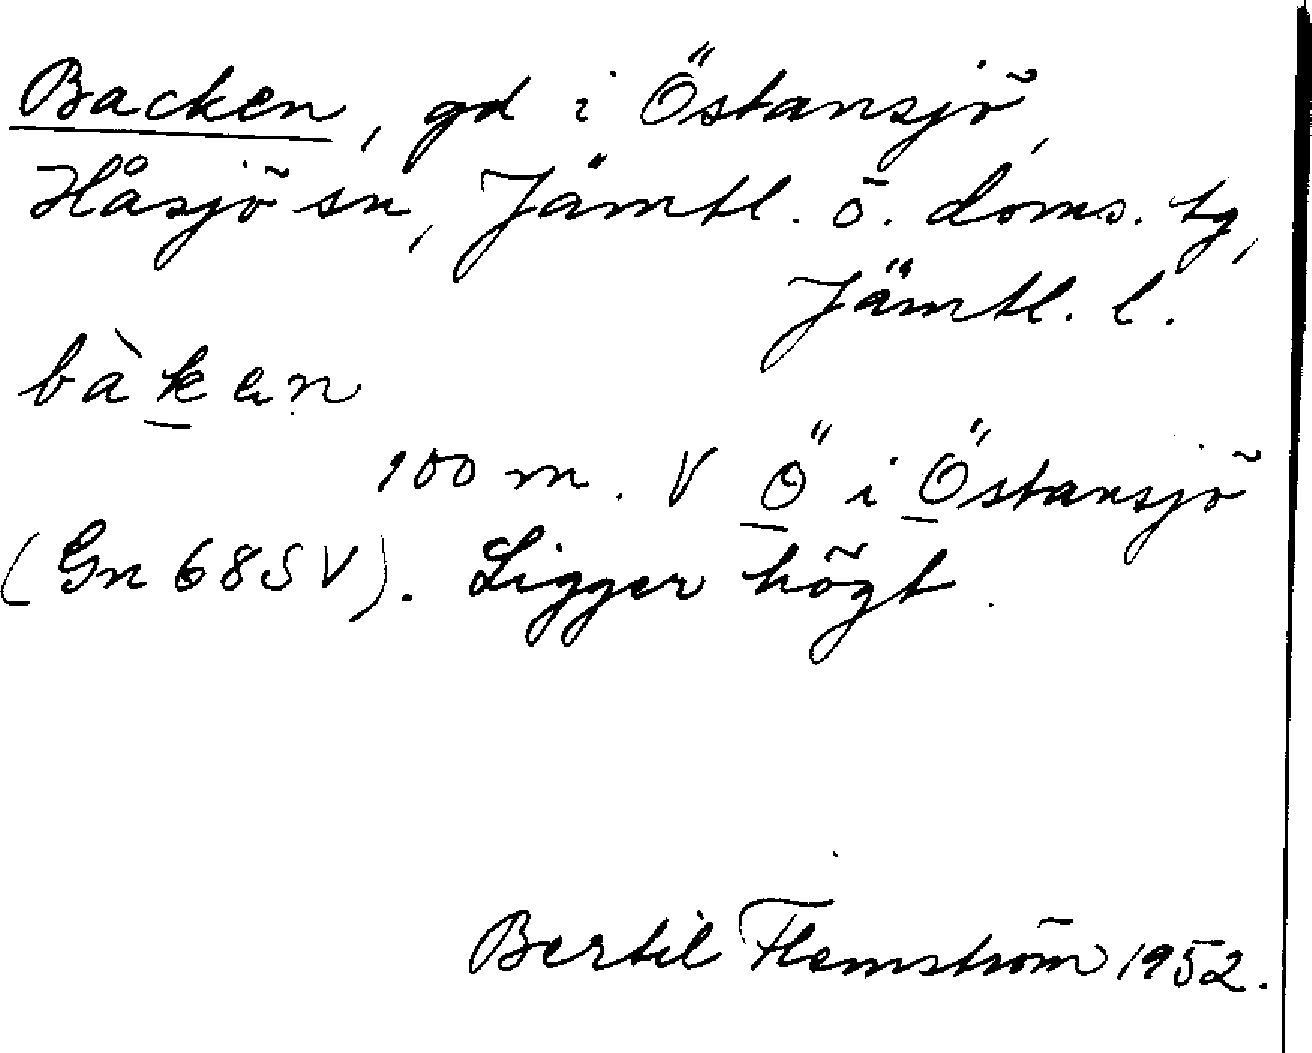 Backen, gd i Östansjö,
Håsjö sn, Jämtl. ö. doms. tg,
Jämtl. l.
bàken
100 m. V Ö i Östansjö
(Gn 68 SV). Ligger högt.
Bertil Flemström 1952.